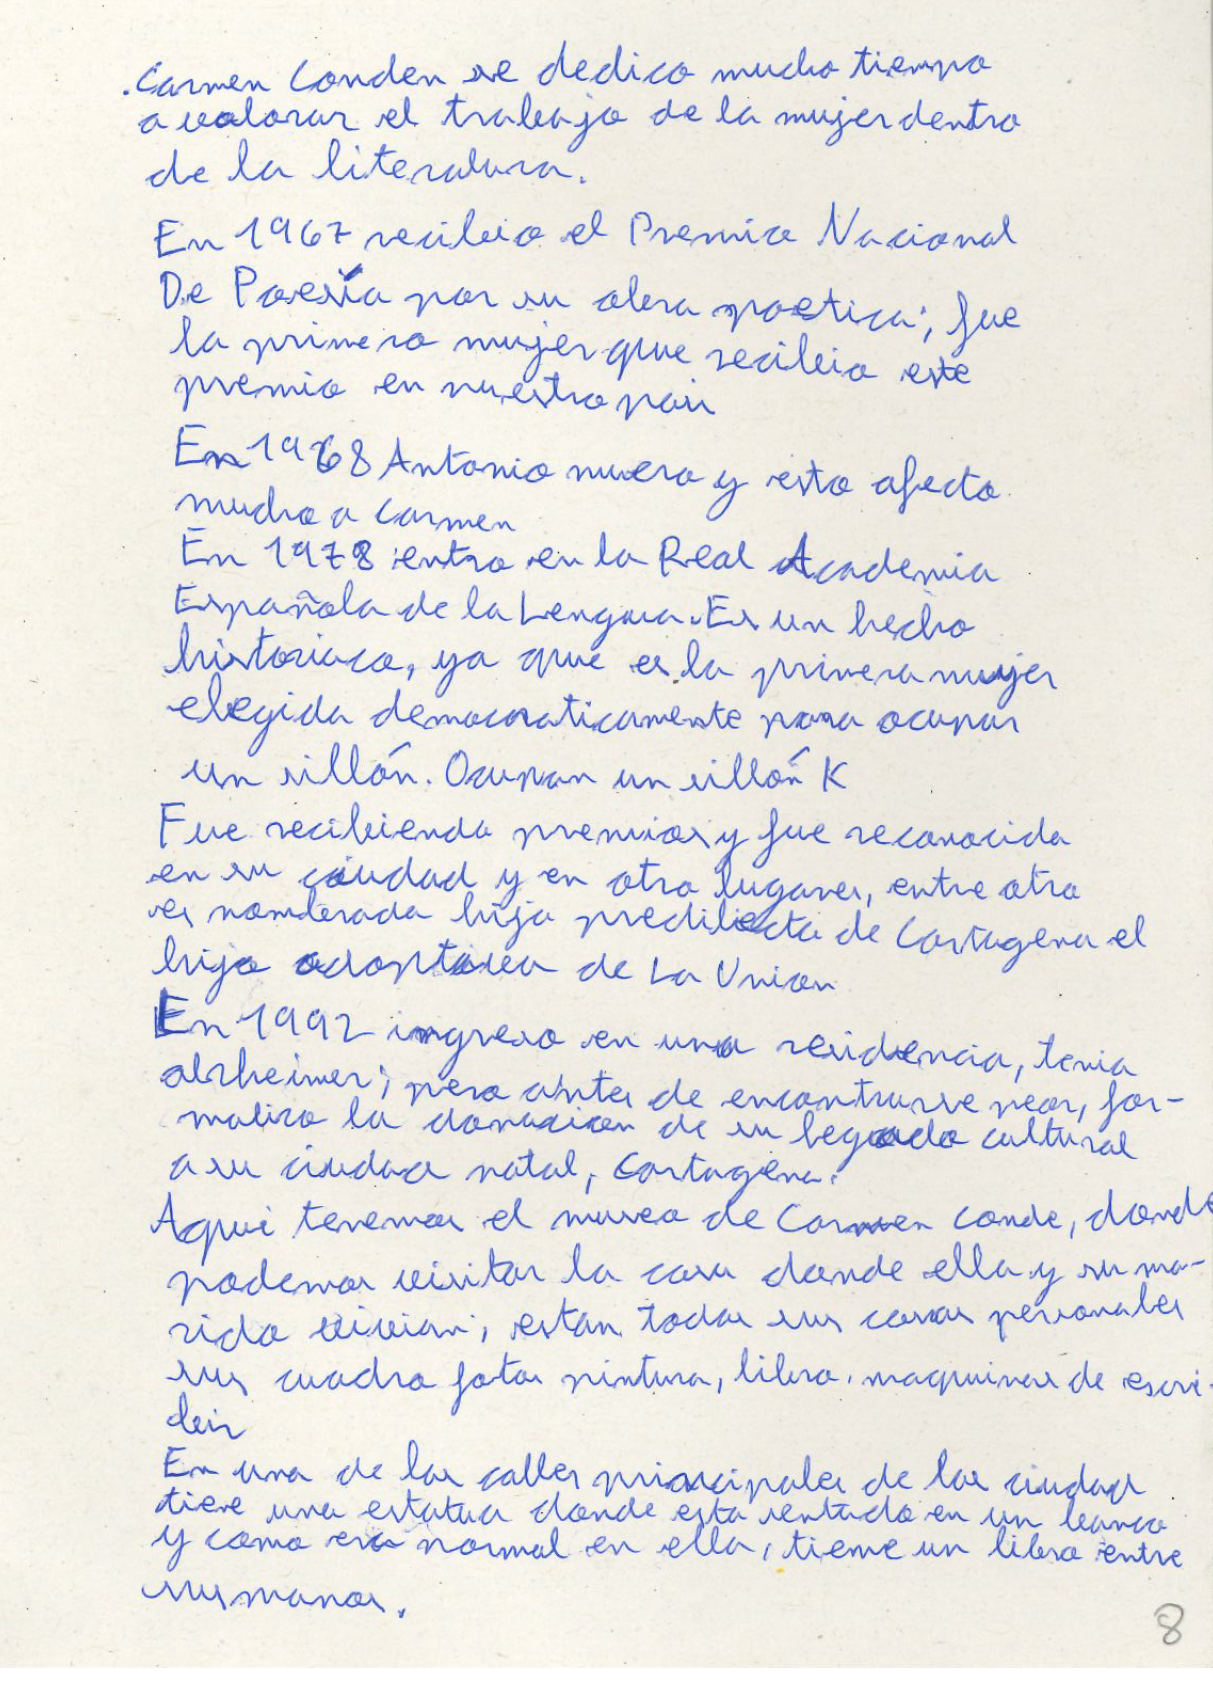 .Carmen Conden se dedico mucho tiempo
a valorar el trabajo de la mujer dentro
de la literatura.
En 1967 recibio el Premio Nacional
De Poesía por su obra poetica; fue
la primera mujer que recibio este
premio en nuestro pais
En 1968 Antonio muero y esto afecto
mucho a Carmen
En 1978 entro en la Real Academia
Española de la Lengua. Es un hecho
historiaco, ya que es la primera mujer
elegida democraticamente para ocupar
un sillón. Ocupan un sillón K
Fue recibienda premios y fue reconocida
en su ciudad y en otro lugares, entre otro
es nombrada hija predilecta de Cartagena el
hija adoptiva de La Union
En 1992 ingreso en una residencia, tenia
alzheimer; pero antes de encontrarse peor, for-
malizo la donacion de su legado cultural
a su ciudad natal, Cartagena.
Aqui tenemos el museo de Carmen Conde, donde
podemos visitar la casa donde ella y su ma-
rido vivian; estan todas sus cosas personales
sus cuadro fotos pintura, libro, maquinas de escri-
bir
En una de las calles principales de las ciudad
tiene una estatua donde esta sentado en un banco
y como era normal en ella, tieme un libro entre
sus manos.
8